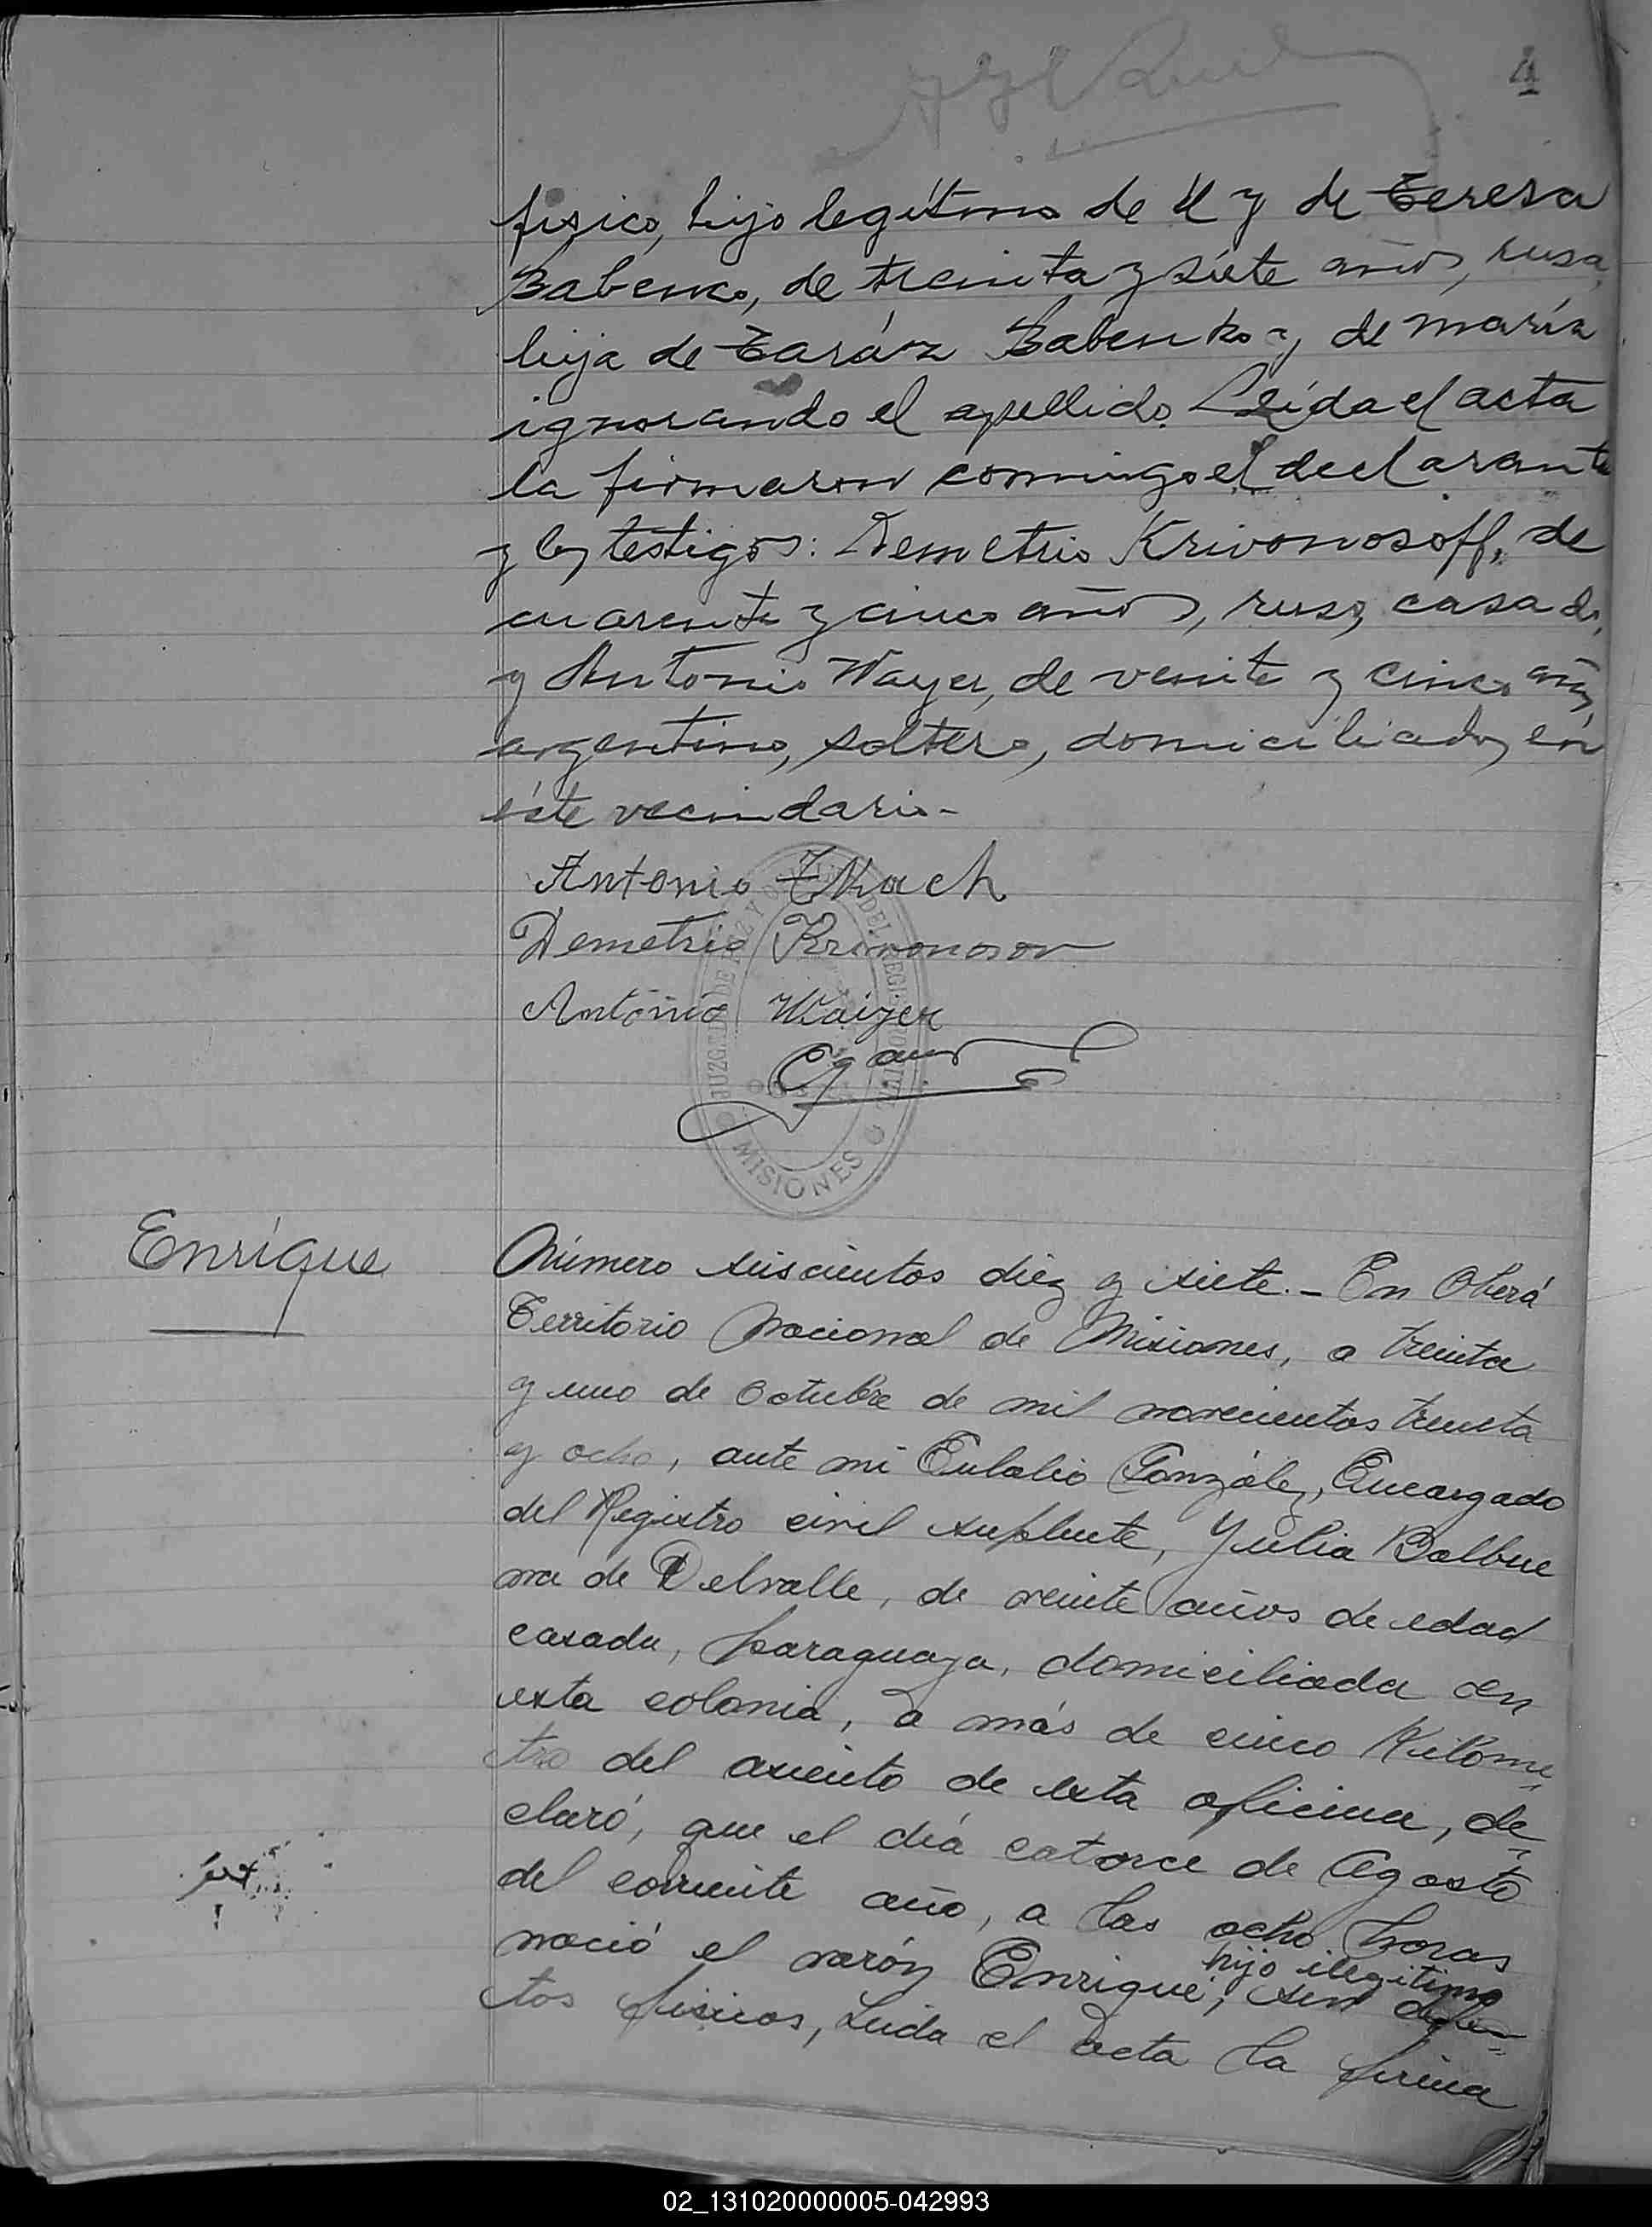 4
fisico, hijo legítimo de él y de Teresa
Babenko, de treinta y siete años, rusa,
hija de Taráz Babenko y de maría
ignorando el apellido. Leída el acta
la firmaron conmigo el declarante
y los testigos: Demetrio Krivonosoff, de
cuarenta y cinco años, ruso, casado,
y Antonio Wayer, de veinte y cinco años,
argentino, soltero, domiciliados en
éste vecindario-
Antonio Tkach
Demetrio Krivonosov
Antonio Waiyer
JUZGADO DE PAZ Y DEL REGISTRO CIVIL
MISIONES
Enrique
Número seiscientos diez y siete.- En Oberá
Territorio Nacional de Misiones, a treinta
y uno de Octubre de mil novecientos treinta
y ocho, ante mi Eulalio González, Encargado
del Registro civil suplente, Julia Balbue
na de Delvalle, de veinte años de edad
casada, paraguaya, domiciliada en
esta colonia, a más de cinco Kilome
tro del asiento de esta oficina, de-
claró, que el día catorce de Agosto
del corriente año, a las ocho horas
nació el varón Enrique, hijo ilegitimo sin defec-
tos fisicos, Leida el acta la firma
02_131020000005-042993